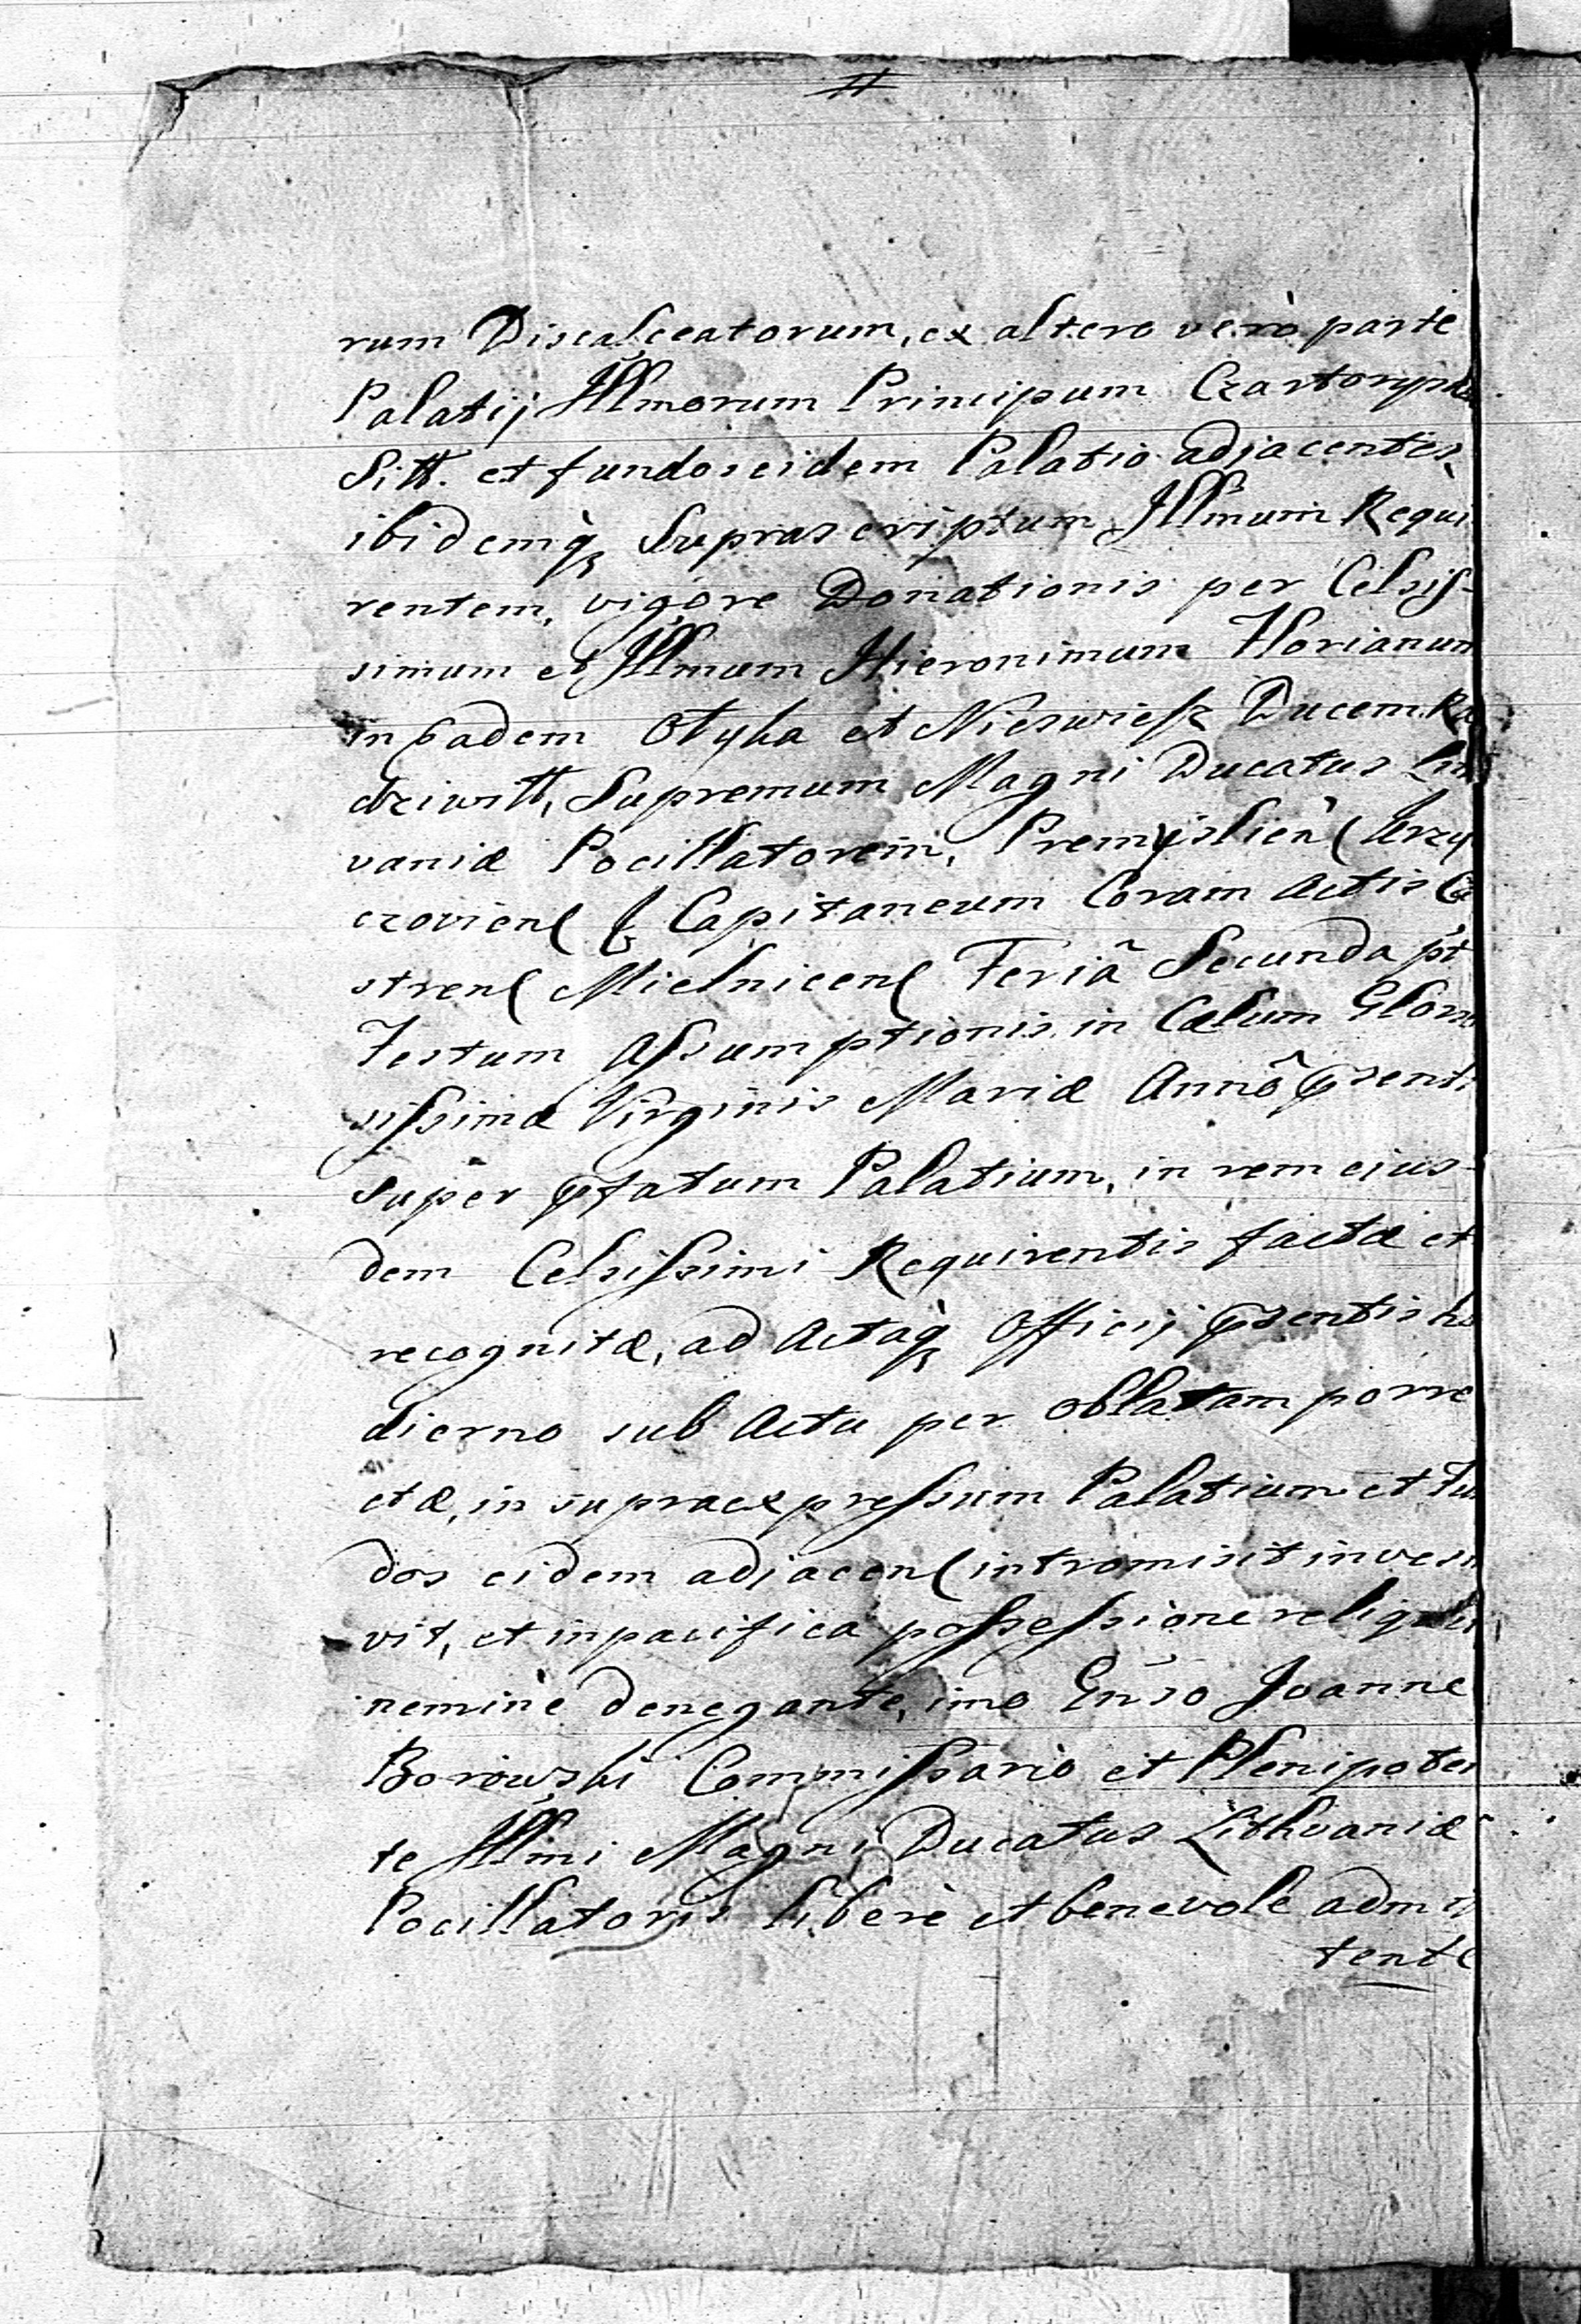 rum Discalceatorum, ex altero verò parte
Palatij Illmorum Principum Czartoryskie
Sitt. et fundos eidem Palatio adjacentes,
ibidemq́ Suprascriptum Illmum Requi
rentem, vigore Donationis per Celsis-
simum et Illmum Hieronimum Florianum
in eadem Otyka et Nieswiesz Ducem Ra
dziwitt, Supremum Magni Ducatus Lit
vaniæ Pocillatorem, Premyslien( Krzy
czovien( & Capitaneum Coram Actis Ca
stren( Mielnicen( Feriâ Secunda pt
Festum Assumptionis in Cælum Glorio
sissimæ Virginis Mariæ Annô psenti
super pfatum Palatium, in rem ejus-
dem Celsissimi Requirentis factæ et
recognitæ, ad Actaq́ Officij psentis ho
dierno sub Actu per Oblatam porre
ctæ, in supraexpressum Palatium et Fun
dos eidem adjacen( intromisit inves
vit, et in pacifica possessione reliqui
nemine denegante, imo Gñso Joanne
Borowski Commissario et Plenipoten
te Illmi Magni Ducatus Lithvaniæ
Pocillatoris liberè et benevole admit
tente